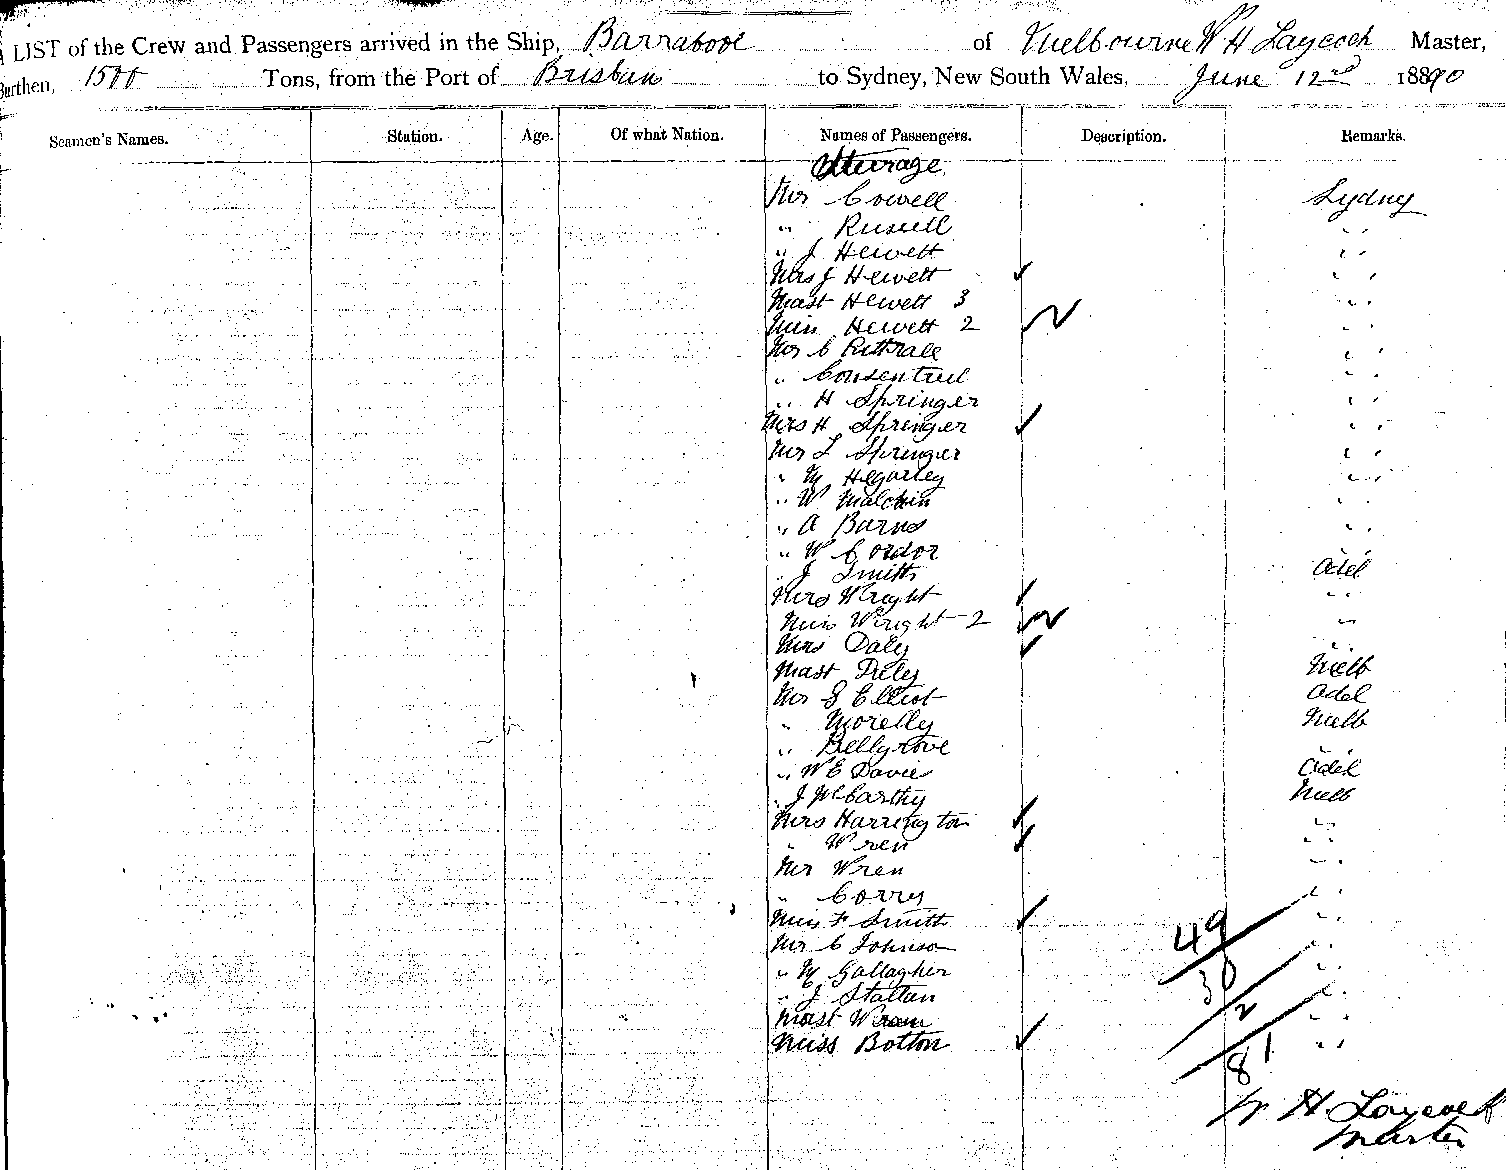 A LIST of the Crew and Passengers arrived in the Ship, Barrabool of Melbourne W H Laycock Master,
Burthen, 1500 Tons, from the Port of Brisbane to Sydney, New South Wales, June 12 1890
Seamen's Names. Station. Age. Of what Nation. Names of Passengers. Description. Remarks.
Steerage
Mr Cowell Sydney
" Russell " "
" J Hewett " "
Mrs J Hewett ✓ " "
Mast Hewett 3 " "
Miss Hewett 2 " "
Mr C " "
" " "
" H Springer " "
Mrs H Springer ✓ " "
Mr L Springer " "
" M Hegarley " "
" W Malchin " "
" A Barns " "
" W Cordor
" J Smith Adel
Mrs Wright ✓ "
Miss Wright 2 "
Mrs Daly ✓ "
Mast Melb
Mr G Elliot Adel
" Morelly Melb
" Bellgrove "
" W E Davies Adel
" J McCarthy Melb
Mrs Harrington ✓ "
" Wren ✓ "
Mr Wren "
" Corry "
Miss F Smith ✓ "
Mr C Johnson "
" M Gallagher "
" J Stallan "
Mast "
Miss Botton ✓ "
49
30
2
81
W H Laycock
Master